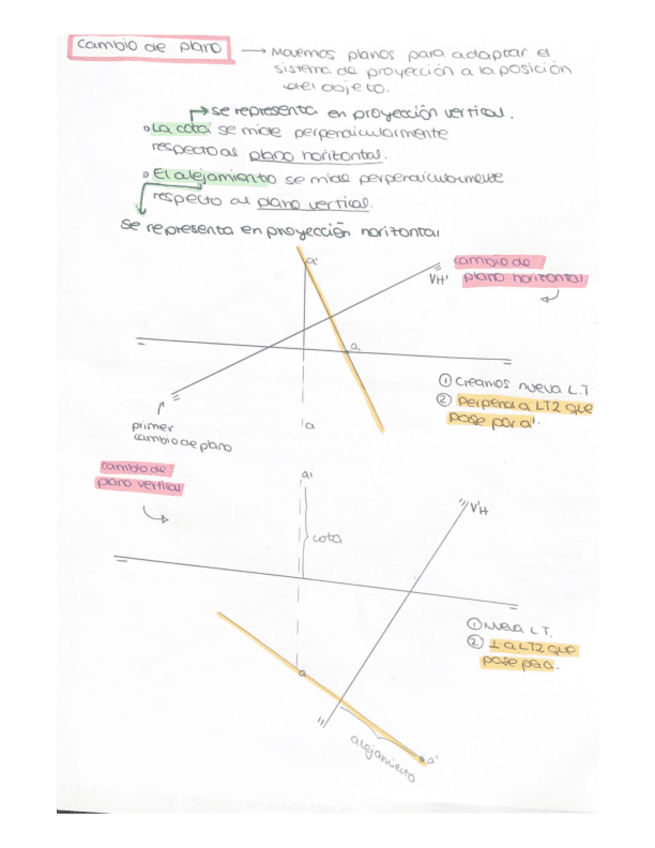 cambio de plano → Movemos planos para adaptar el
sistema de proyección a la posición
del objeto.
se representa en proyección vertical.
La cota se mide perpendicularmente
respecto al plano horizontal.
El alejamiento se mide perpendicularmente
respecto al plano vertical.
se representa en proyección horizontal
a'
VH'
cambio de
plano horizontal
a,
① Creamos nueva L.T
② Perpend a LT2 que
pase por a'.
primer
cambio de plano
a
cambio de
plano vertical
a'
V'H
cota
① Nueva L T.
② ⊥ a LT2 que
pase por a.
a
alejamiento
a'